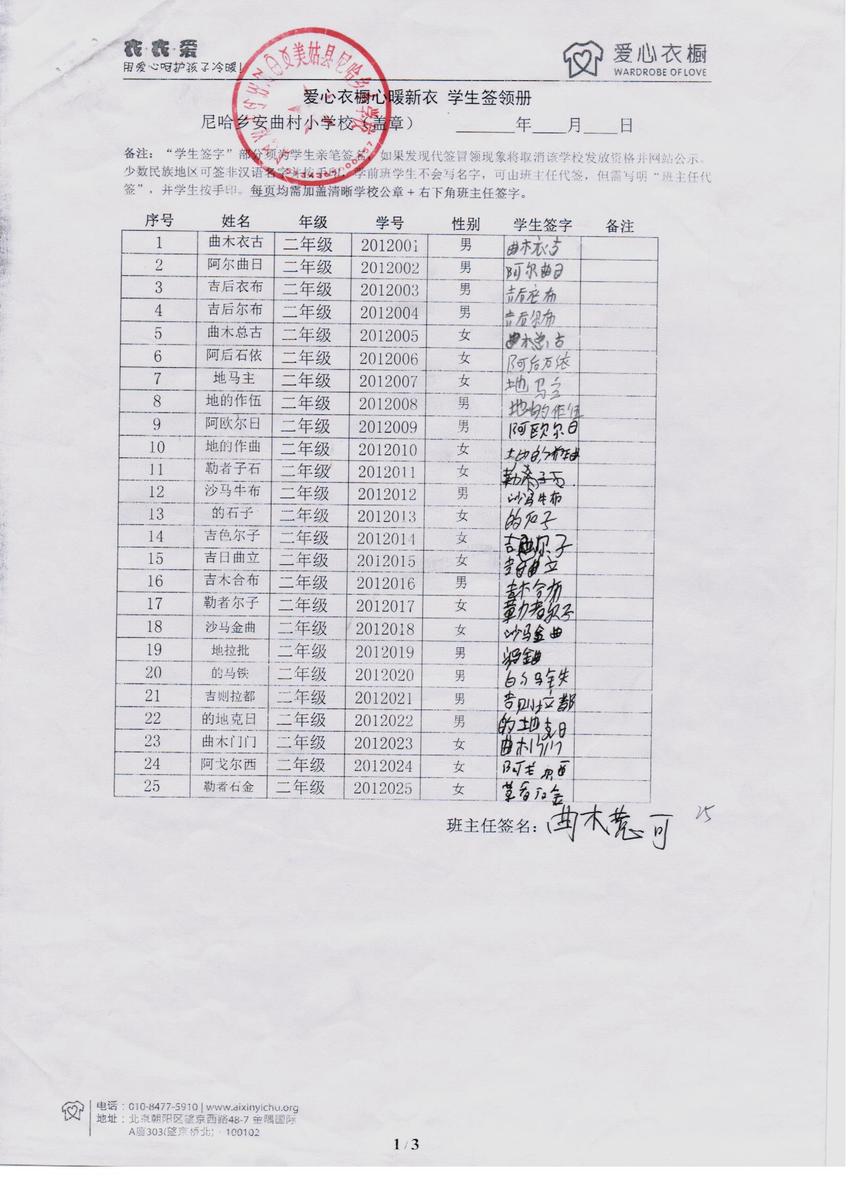 衣·衣·爱
用爱心呵护孩子冷暖!
爱心衣橱
WARDROBE OF LOVE
美姑县尼哈乡
爱心衣橱心暖新衣 学生签领册
尼哈乡安曲村小学校（盖章） 年 月 日
备注：“学生签字”部分须为学生亲笔签名，如果发现代签冒领现象将取消该学校发放资格并网站公示。
少数民族地区可签非汉语名字并按手印，学前班学生不会写名字，可由班主任代签，但需写明“班主任代
签”，并学生按手印。每页均需加盖清晰学校公章+右下角班主任签字。
序号 姓名 年级 学号 性别 学生签字 备注
1 曲木衣古 二年级 2012001 男 曲木衣古
2 阿尔曲日 二年级 2012002 男 阿尔曲日
3 吉后衣布 二年级 2012003 男 吉后衣布
4 吉后尔布 二年级 2012004 男 吉后尔布
5 曲木总古 二年级 2012005 女 曲木总古
6 阿后石依 二年级 2012006 女 阿后万依
7 地马主 二年级 2012007 女 地马主
8 地的作伍 二年级 2012008 男 地的作伍
9 阿欧尔日 二年级 2012009 男 阿欧尔日
10 地的作曲 二年级 2012010 女 地的作曲
11 勒者子石 二年级 2012011 女
12 沙马牛布 二年级 2012012 男 沙马牛布
13 的石子 二年级 2012013 女 的石子
14 吉色尔子 二年级 2012014 女 吉色尔子
15 吉日曲立 二年级 2012015 女 吉日曲立
16 吉木合布 二年级 2012016 男 吉木合布
17 勒者尔子 二年级 2012017 女 勒者尔子
18 沙马金曲 二年级 2012018 女 沙马金曲
19 地拉批 二年级 2012019 男
20 的马铁 二年级 2012020 男 的马铁
21 吉则拉都 二年级 2012021 男 吉则拉都
22 的地克日 二年级 2012022 男 的地克日
23 曲木门门 二年级 2012023 女 曲木门门
24 阿戈尔西 二年级 2012024 女 阿戈尔西
25 勒者石金 二年级 2012025 女
班主任签名：曲木 可 25
电话：010-8477-5910 | www.aixinyichu.org
地址：北京朝阳区望京西路48-7 金隅国际
A座303(望京桥北)·100102
1 / 3